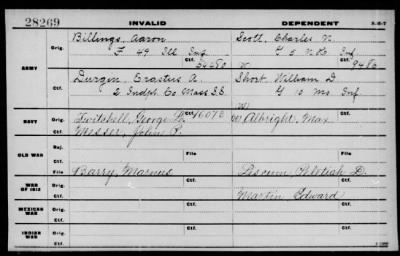 28269 INVALID DEPENDENT 3-6-7
Billings, Aaron Scott, Charles N.
Orig. F 49 Ill Inf G 5 N.H. Inf
Ctf. Ctf.
ARMY W 9486
Durgin, Erastus A. Short William D
Orig. 2 Indpt. Co Mass S.S. G 10 Mo Inf
Ctf. W
NAVY Orig. Twitchell, George Ctf. Albright, Max
Ctf. Messer, John P.
OLD WAR Rej.
Ctf. File File
WAR OF 1812 Orig. Barry, Magnus D.
Ctf. Martin Edward
MEXICAN WAR Orig.
Ctf.
INDIAN WAR Orig.
Ctf.